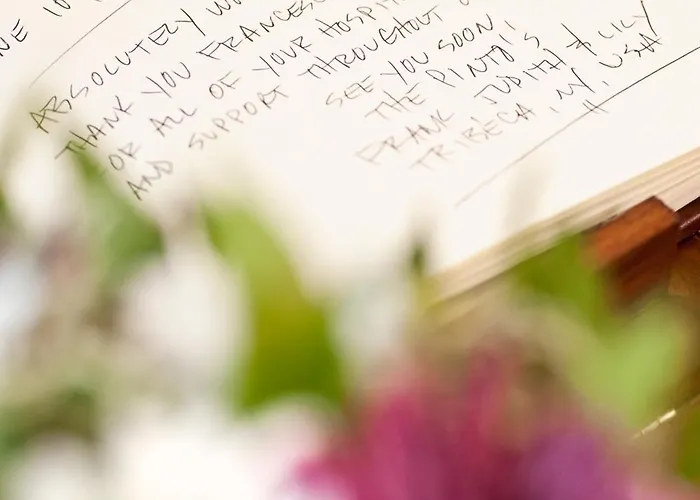 NE
ABSOLUTELY
THANK YOU FRANCES
OR ALL OF YOUR HOSPIT
AND SUPPORT THROUGHOUT
SEE YOU SOON!
THE PINTO'S
FRANK, JUDITH & LILY
TRIBECA, NY, USA